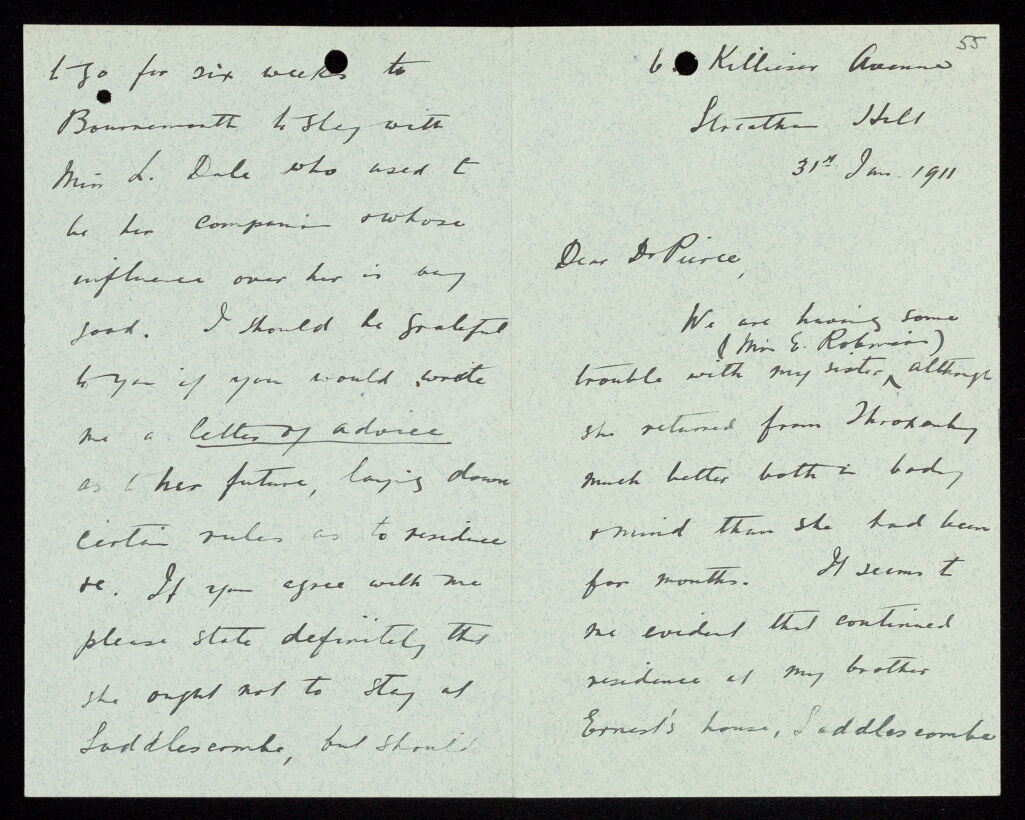 55
6 Killieser Avenue
Streatham Hill
31st Jan. 1911
Dear Dr Pierce,
We are having some
(Miss E. Robinson)
trouble with my sister, although
she returned from Throxenby
much better both in body
& mind than she had been
for months. It seems to
me evident that continued
residence at my brother
Ernest's house, Saddlescombe
to go for six weeks to
Bournemouth to stay with
Miss L. Dale who used to
be her companion & whose
influence over her is very
good. I should be grateful
to you if you would write
me a letter of advice
as to her future, laying down
certain rules as to residence
&c. If you agree with me
please state definitely that
she ought not to stay at
Saddlescombe, but should